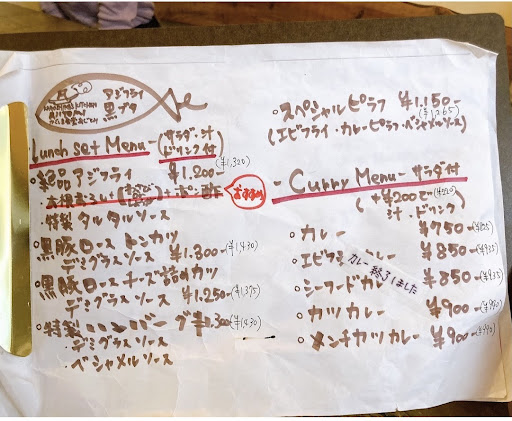 アジフライ
黒ブタ
Lunch set Menu - (サラダ・汁 ドリンク付)
・絶品アジフライ ¥1.200- (¥1,320)
ポン酢
おすすめ
特製タルタルソース
・黒豚ロース トンカツ
デミグラスソース ¥1.300- (¥1,430)
・黒豚ロースチーズ詰めカツ
デミグラスソース ¥1.250- (¥1,375)
・特製ハンバーグ ¥1.300 (¥1,430)
・デミグラスソース
・ベシャメルソース
・スペシャルピラフ ¥1.150- (¥1,265)
(エビフライ・カレーピラフ・ベシャメルソース)
- Curry Menu - サラダ付
(+¥200で (¥220)
汁・ドリンク)
・カレー ¥750- (¥825)
・エビフライカレー ¥850- (¥935)
カレー終了しました
・シーフードカレー ¥850- (¥935)
・カツカレー ¥900- (¥990)
・メンチカツカレー ¥900- (¥990)